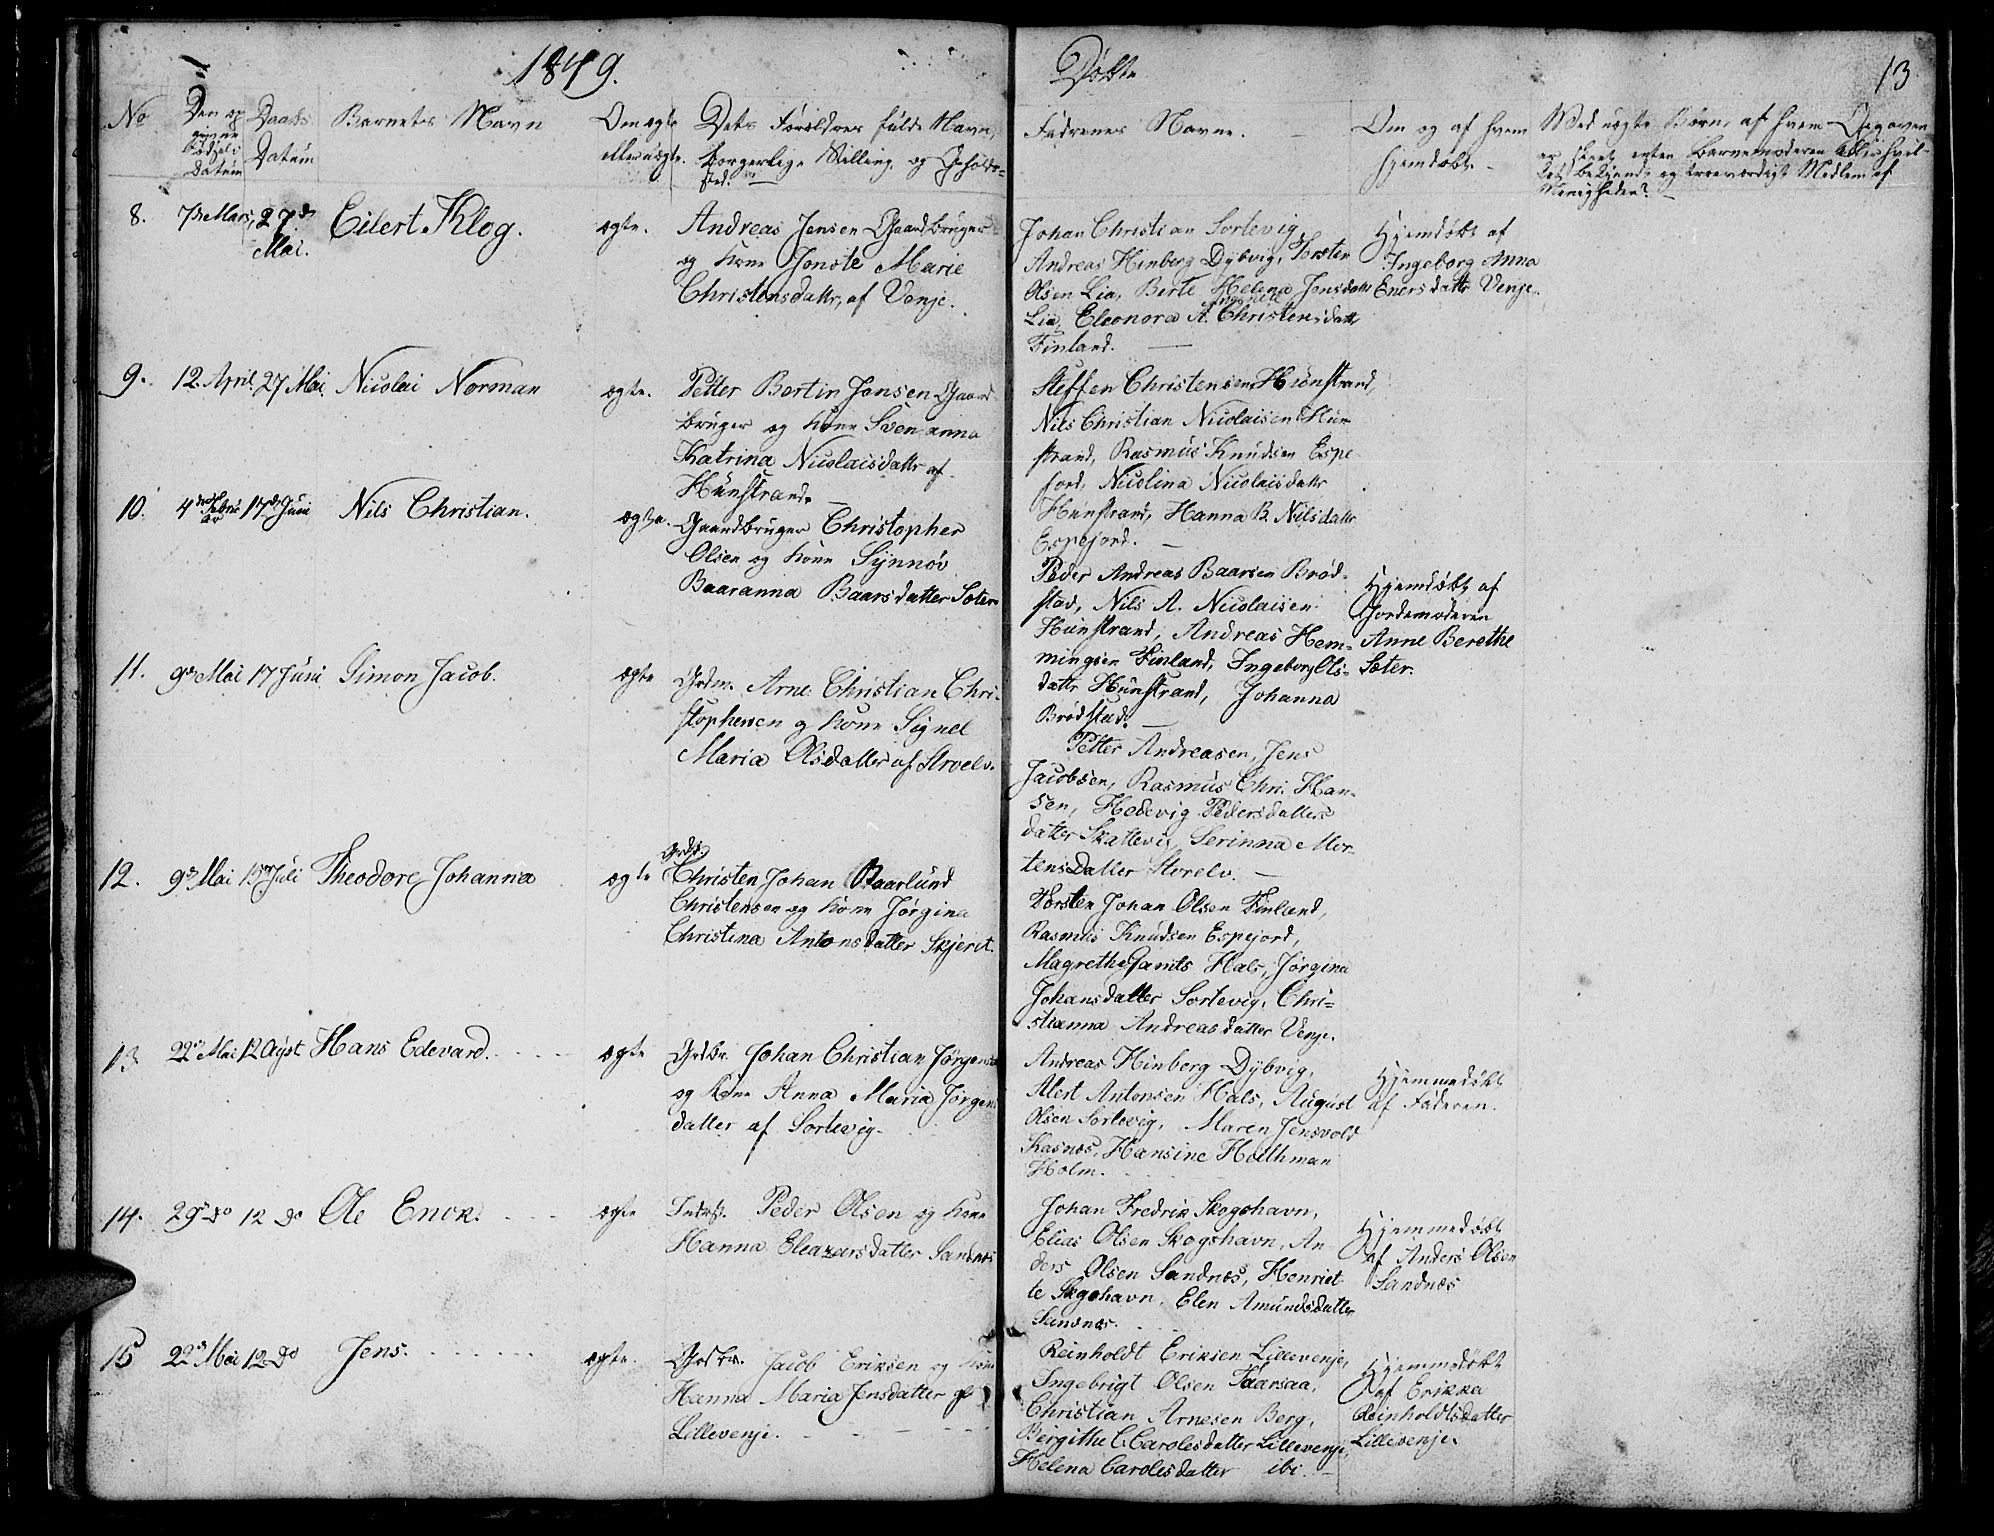 1849.
Døbte
13
No
Den op
givne
Fødsels
Datum
Daabs
Datum
Barnets Navn
Om ægte
eller uægte.
Dets Forældres fulde Navn,
borgerlige Stilling og Opholds-
sted.
Fadrenes Navne.
Om og af hvem
hjemdøbt.
Med uægte Børn, af hvem Opgaven
er skeet, enten Barnemoderen eller hvil-
ket bekjendt og troeværdigt Medlem af
Menigheden?
8.
7de Mars,
27de
Mai.
Eilert Klog.
ægte.
Andreas Jensen Gaardbruger
og Kone Jonete Marie
Christensdattr, af Venje.
Johan Christian Sortevig
Andreas Hinberg Dybvig, Torsten
Olsen Lia, Berte Helena Jensdattr
Lia, Eleonora A. Christensdattr
Finland.
Hjemdøbt af
Ingeborg Anna
Enersdattr Venje.
9.
12. April,
27 Mai.
Nicolai Norman
ægte.
Petter Bertin Jensen Gaard
bruger og Kone Svenanna
Katrina Nicolaisdattr af
Hunstrand.
Steffen Christensen Hunstrand,
Nils Christian Nicolaisen Hun
strand, Rasmus Knudsen Espe
jord, Nicolina Nicolaisdattr
Hunstrand, Hanna B. Nilsdattr
Espejord.
10.
4de Febru
ar
17de Juni
Nils Christian.
ægte.
Gaardbruger Christopher
Olsen og Kone Synnøv
Baaranna Baarsdatter Sæter
Peder Andreas Baarsen Brød-
stad, Nils A. Nicolaisen
Hunstrand, Andreas Hem-
mingsen Finland, Ingeborg Ols-
dattr Hunstrand, Johanna
Brødstad.
Hjemdøbt af
Jordemoderen
Anne Berethe
Sæter.
11.
9de Mai
17 Juni
Simon Jacob.
ægte
Grdm. Arne Christian Chri-
stophersen og Kone Signel
Maria Olsdatter af Storelv.
Petter Andreasen, Jens
Jacobsen, Rasmus Chri. Han-
sen, Hedevig Peders datters
datter Skattevig, Serinna Mor-
tensdatter Storelv.
12.
9de Mai
15de Juli
Theodore Johanna
ægte
Grdb.
Christen Johan Baarlund
Christensen og Kone Jørgina
Christina Antonsdatter Skjerit.
Torsten Johan Olsen Finland,
Rasmus Knudsen Espejord,
Magrethe Gamts Hals, Jørgina
Johansdatter Sortevig, Chri-
stianna Andreasdatter Venje.
13.
22de Mai
12 Augst
Hans Edevard.
ægte
Grdbr. Johan Christian Jørgens
og Kone Anna Maria Jørgens
datter af Sortevig.
Andreas Hinberg Dybvig,
Alert Antonsen Hals, August
Olsen Sortevig, Maren Jensvold
Kasnæs, Hansine Holthman
Holm.
Hjemmedøbt
af Faderen.
14.
29de do
12 do
Ole Enok.
ægte
Inderst. Peder Olsen og Kone
Hanna Eleazarsdatter Sandnæs
Johan Fredrik Skogshavn,
Elias Olsen Skogshavn, An
ders Olsen Sandnæs, Henriet
te Skogshavn, Elen Amundsdatter
Sandnæs.
Hjemmedøbt
af Anders Olsen
Sandnæs
15
22de Mai
12 do
Jens.
ægte.
Grdbr. Jacob Eriksen og Kone
Hanna Maria Jensdatter af
Lillevenje.
Reinholdt Eriksen Lillevenje,
Ingebrigt Olsen Faarsaa,
Christian Arnesen Berg,
Bergithe C. Carolesdatter Lillevenje,
Helena Carolesdatter ibi.
Hjemmedøbt
af Erikka
Reinholdtsdatter
Lillevenje.